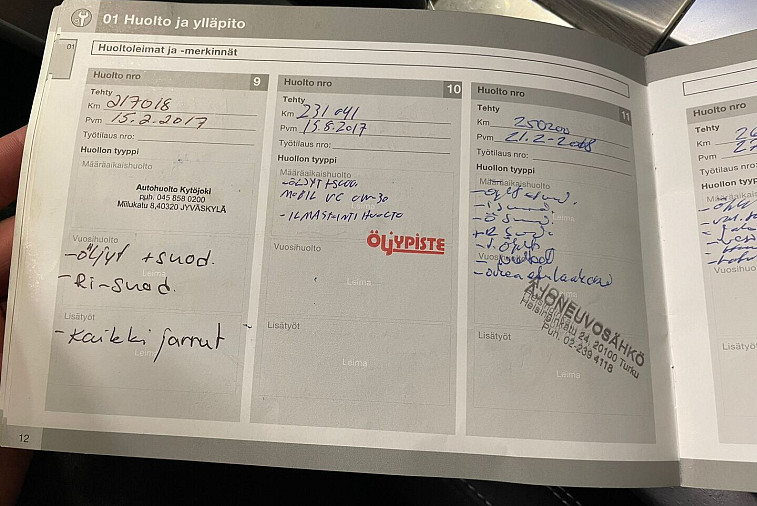 01 Huolto ja ylläpito
01
Huoltoleimat ja -merkinnät
Huolto nro 9
Tehty
Km 217018
Pvm 15.2.2017
Työtilaus nro:
Huollon tyyppi
Määräaikaishuolto
Autohuolto Kytöjoki
puh. 045 858 0200
Miilukatu 8,40320 JYVÄSKYLÄ
Vuosihuolto
-öljyt +suod.
Leima
-Ri-suod.
Lisätyöt
-Kaikki jarrut
Leima
12
Huolto nro 10
Tehty
Km 231041
Pvm 15.8.2017
Työtilaus nro:
Huollon tyyppi
Määräaikaishuolto
-ÖLJYT+SUOD.
MOBIL
-ILMASTOINTI HUOLTO
ÖLJYPISTE
Vuosihuolto
Leima
Lisätyöt
Leima
Huolto nro 11
Tehty
Km 250200
Pvm 21.2-2018
Työtilaus nro:
Huollon tyyppi
Määräaikaishuolto
Leima
Vuosihuolto
AJONEUVOSÄHKÖ
Helsinginkatu 24, 20100 Turku
Puh. 02-239 4118
Lisätyöt
Leima
Huolto nro
Tehty
Km 26
Pvm 27
Työtilaus nro:
Huollon tyyppi
Määräaikai
Vuosihuo
Lisätyö